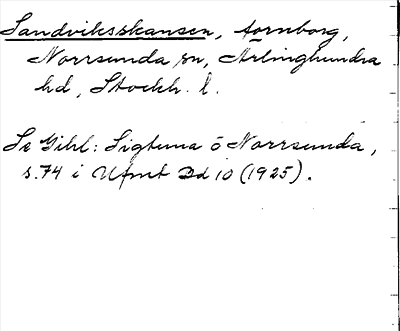 Sandviksskansen, fornborg,
Norrsunda sn, Ärlinghundra
hd, Stockh. l.
Se Gihl: Sigtuna o Norrsunda,
s. 74 i Upmt Bd 10 (1925).